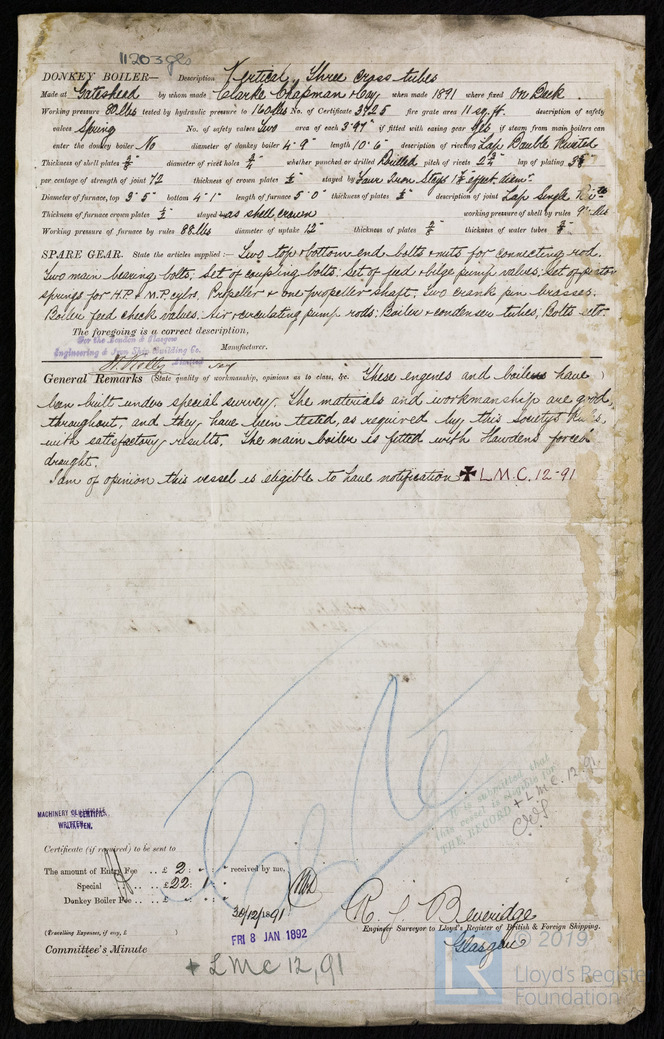 11203 gls
DONKEY BOILER— Description Vertical, Three Cross tubes
Made at Gateshead by whom made Clarke Chapman & Coy when made 1891 where fixed On Deck
Working pressure 80 lbs tested by hydraulic pressure to 160 lbs No. of Certificate 3725 fire grate area 11 sq. ft. description of safety
valves Spring No. of safety valves Two area of each 3.97" if fitted with easing gear yes if steam from main boilers can
enter the donkey boiler No diameter of donkey boiler 4'-9" length 10'-6" description of riveting Lap Double Riveted
Thickness of shell plates diameter of rivet holes whether punched or drilled Drilled pitch of rivets lap of plating
per centage of strength of joint 72 thickness of crown plates stayed by Four Iron Stays effect. diam.
Diameter of furnace, top 3'-5" bottom 4'-1" length of furnace 5'-0" thickness of plates description of joint Lap Single
Thickness of furnace crown plates stayed as shell crown working pressure of shell by rules lbs
Working pressure of furnace by rules 88 lbs diameter of uptake 12" thickness of plates thickness of water tubes
SPARE GEAR. State the articles supplied :— Two top & bottom end bolts & nuts for connecting rod.
Two main bearing bolts; set of coupling bolts; set of feed & bilge pump valves; set of piston
springs for H.P. & M.P. cylrs. Propeller & one propeller shaft. Two crank pin brasses.
Boiler feed check valves. Air & circulating pump rods; Boiler & condenser tubes; Bolts &c.
The foregoing is a correct description,
For the London & Glasgow
Engineering & Iron Ship Building Co. Limited
Manufacturer.
General Remarks (State quality of workmanship, opinions as to class, &c. These engines and boilers have
been built under special survey. The materials and workmanship are good,
throughout, and they have been tested, as required by this Society's Rules,
with satisfactory results. The main boiler is fitted with Howdens forced
draught.
I am of opinion this vessel is eligible to have notification ✠ L.M.C. 12-91
It is submitted that
this vessel is eligible for
THE RECORD + L.M.C. 12.91
MACHINERY CERTIFICATE
WRITTEN.
Certificate (if required) to be sent to
The amount of Entry Fee .. £ 2 : - : - received by me,
Special .. .. £22 : 1 :
Donkey Boiler Fee .. .. £ : :
30/12/1891
(Travelling Expenses, if any, £ )
R. J. Beveridge
Engineer Surveyor to Lloyd's Register of British & Foreign Shipping.
Glasgow
FRI 8 JAN 1892
Committee's Minute
+ LMC 12,91
© 2019
LR
Lloyd's Register
Foundation